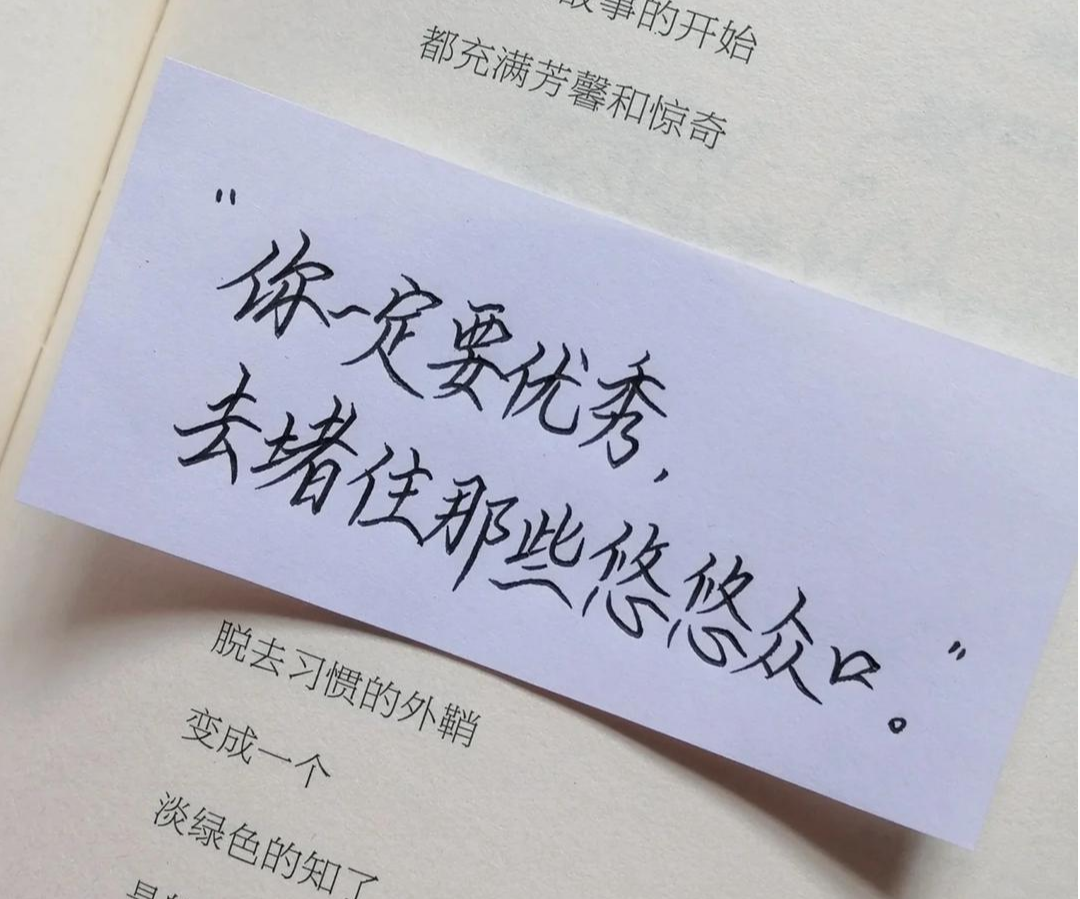 故事的开始
都充满芳馨和惊奇
"你一定要优秀,
去堵住那些悠悠众口。"
脱去习惯的外鞘
变成一个
淡绿色的知了